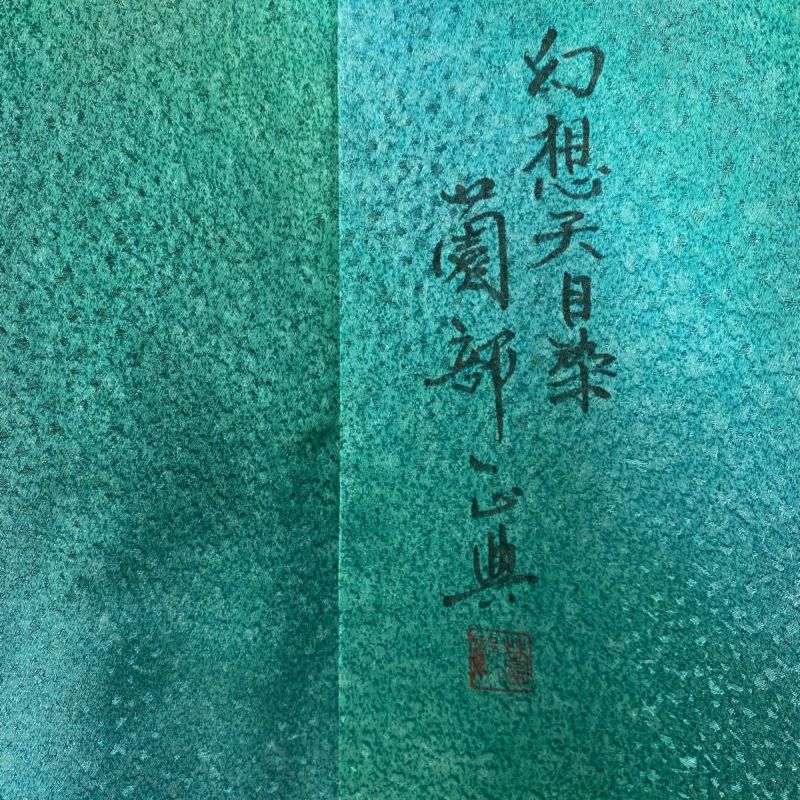 幻想天目染
薗部正典